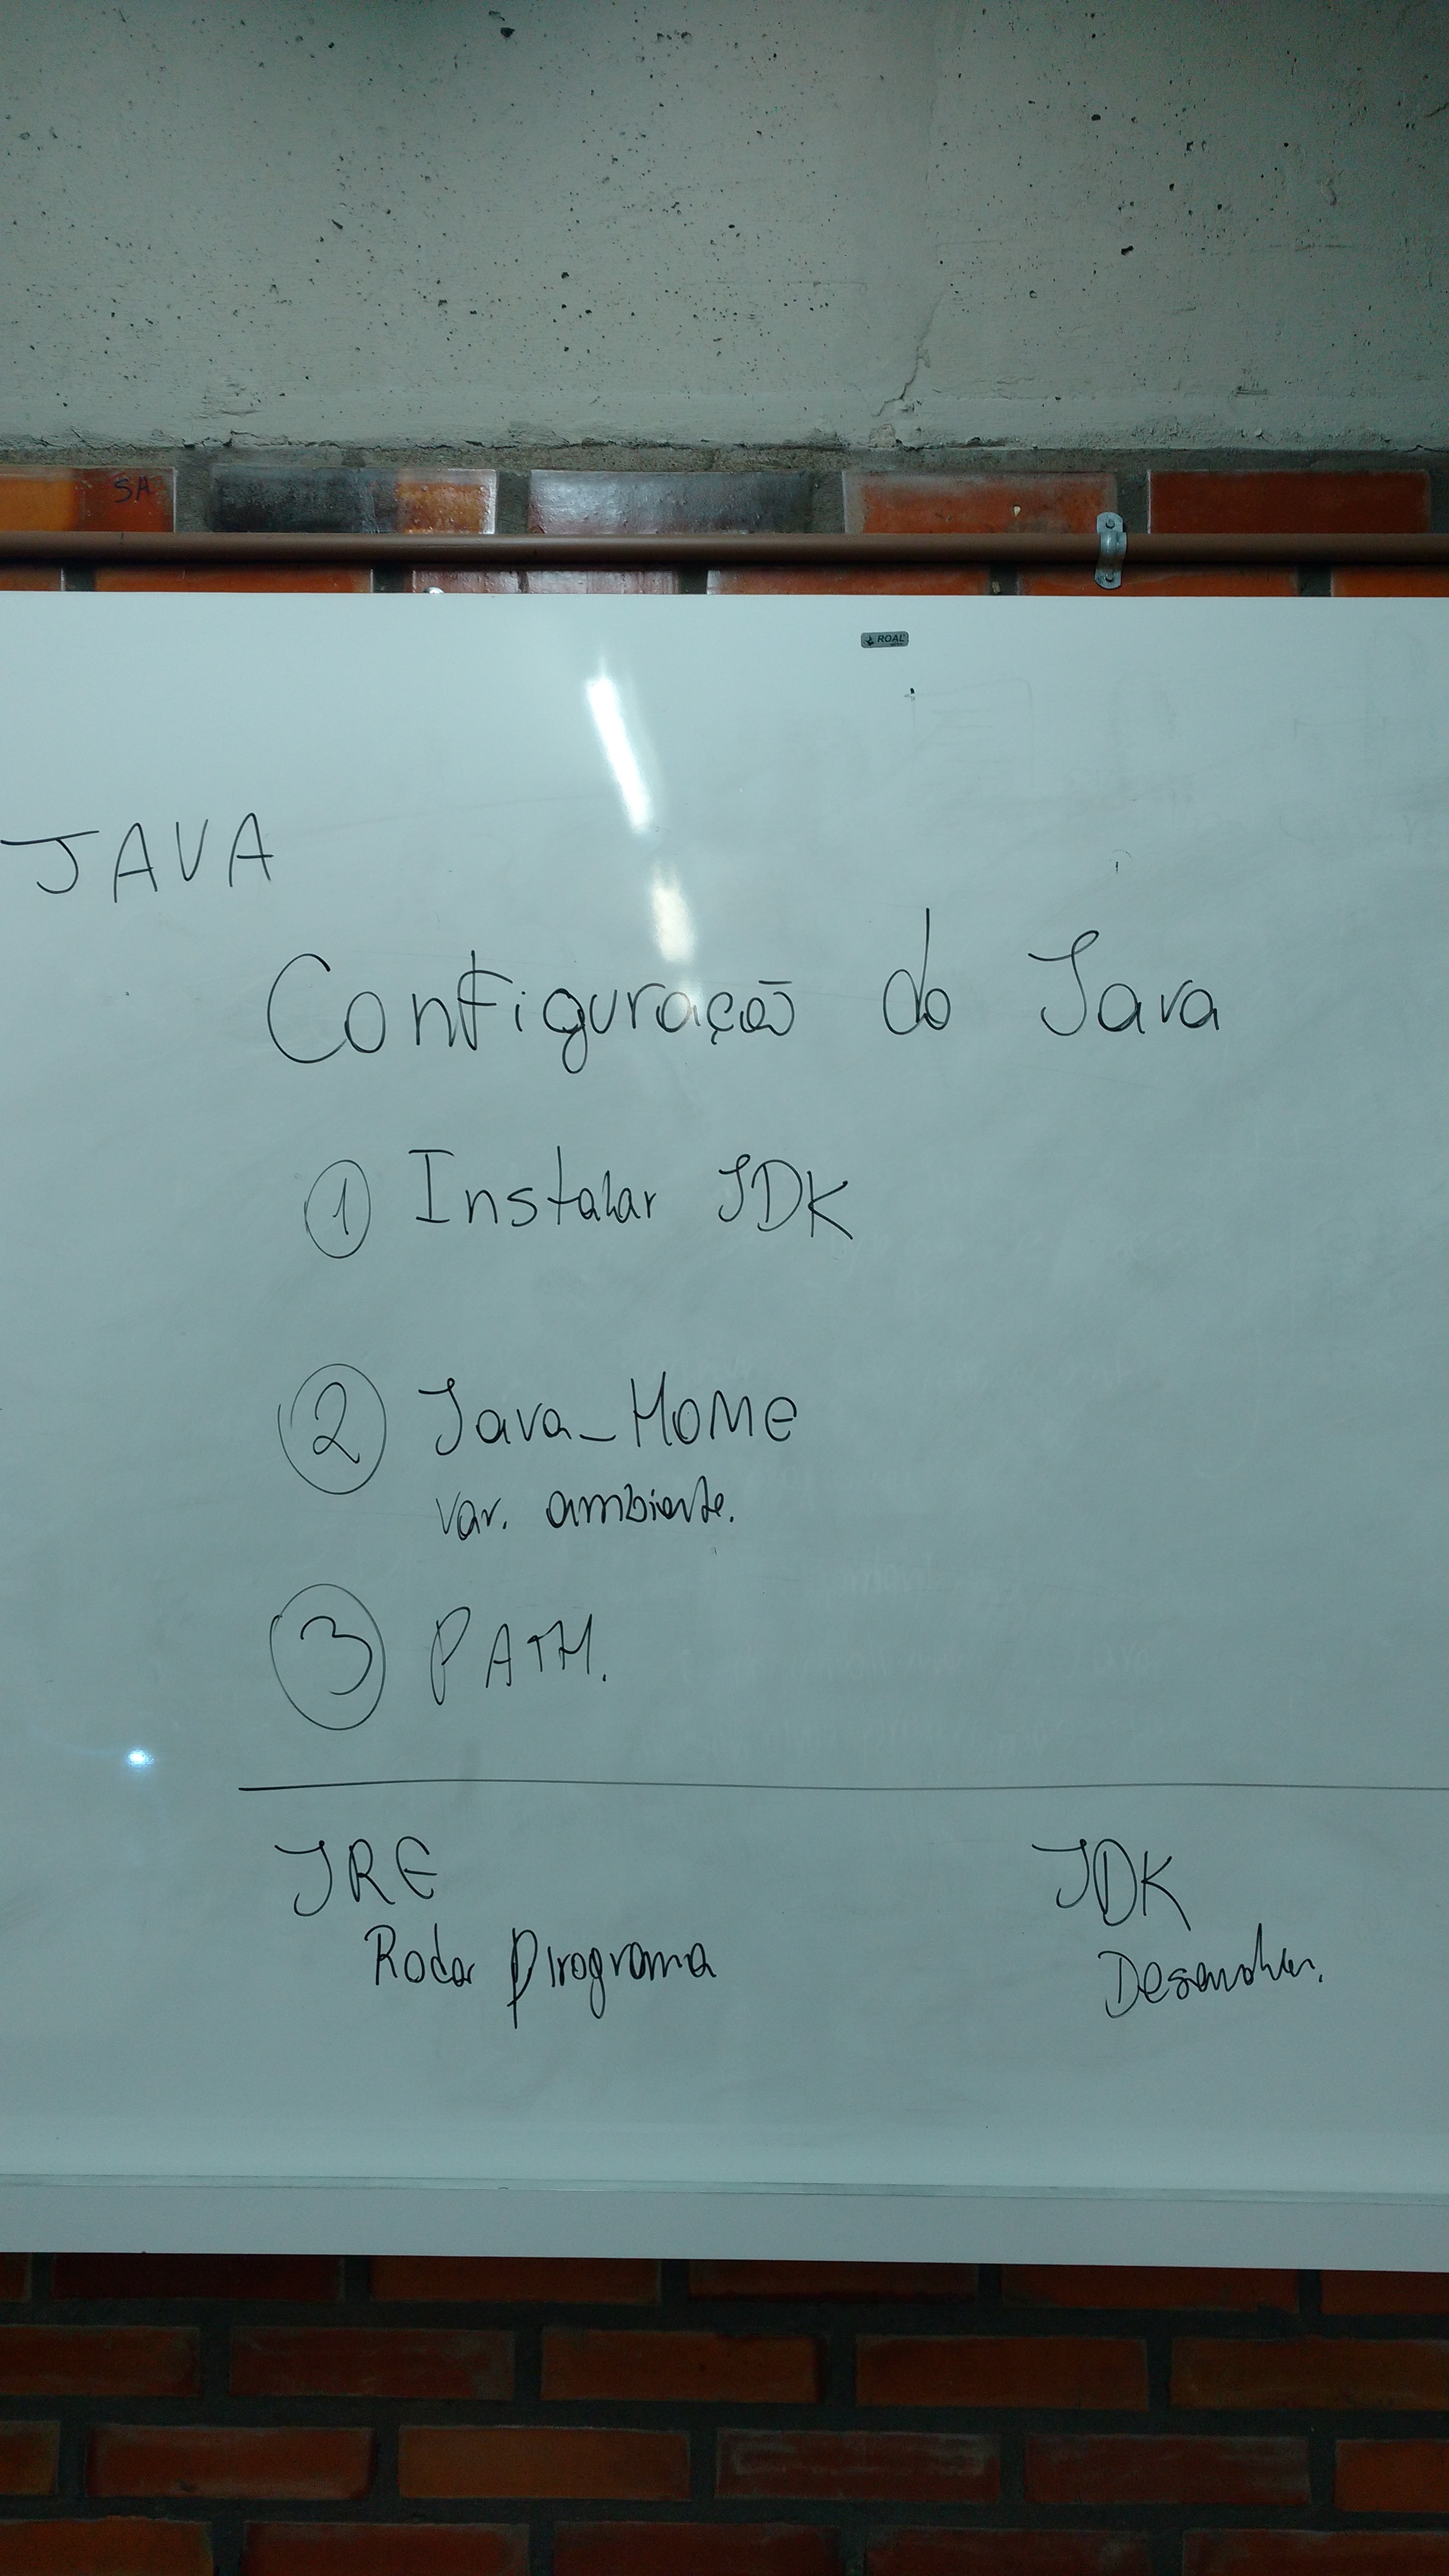 SA
ROAL
JAVA
Configuração do Java
1 Instalar JDK
2 Java_HOME
var. ambiente.
3 PATH.
JRE JDK
Rodar programa Desenvolver.